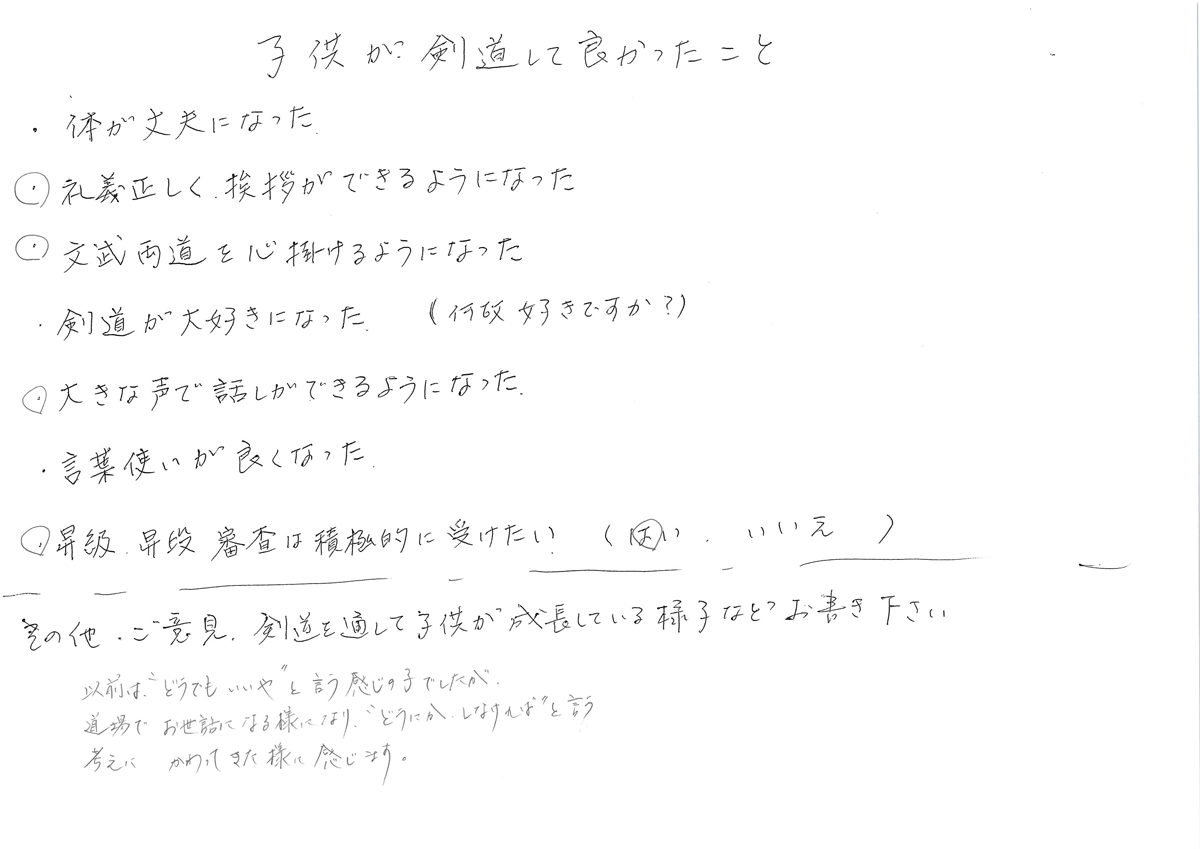 子供が剣道して良かったこと
・体が丈夫になった.
・礼義正しく.挨拶ができるようになった
・文武両道を心掛けるようになった
・剣道が大好きになった. (何故好きですか?)
・大きな声で話しができるようになった.
・言葉使いが良くなった.
・昇級.昇段審査は積極的に受けたい. (はい.いいえ)
その他.ご意見.剣道を通して子供が成長している様子などお書き下さい
以前は、"どうでもいいや"と言う感じの子でしたが、
道場でお世話になる様になり、"どうにか、しなければ"と言う
考えにかわってきた様に感じます。